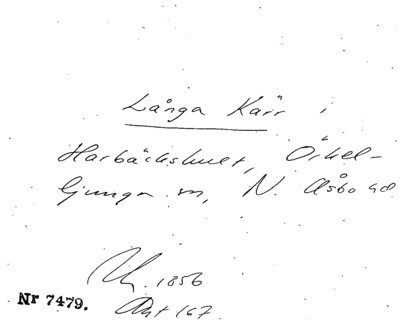 Långa Kärr i
Harbäckshult, Örkel-
ljunga sn, N. Åsbo hd
1856
Nr 7479. Akt 167.